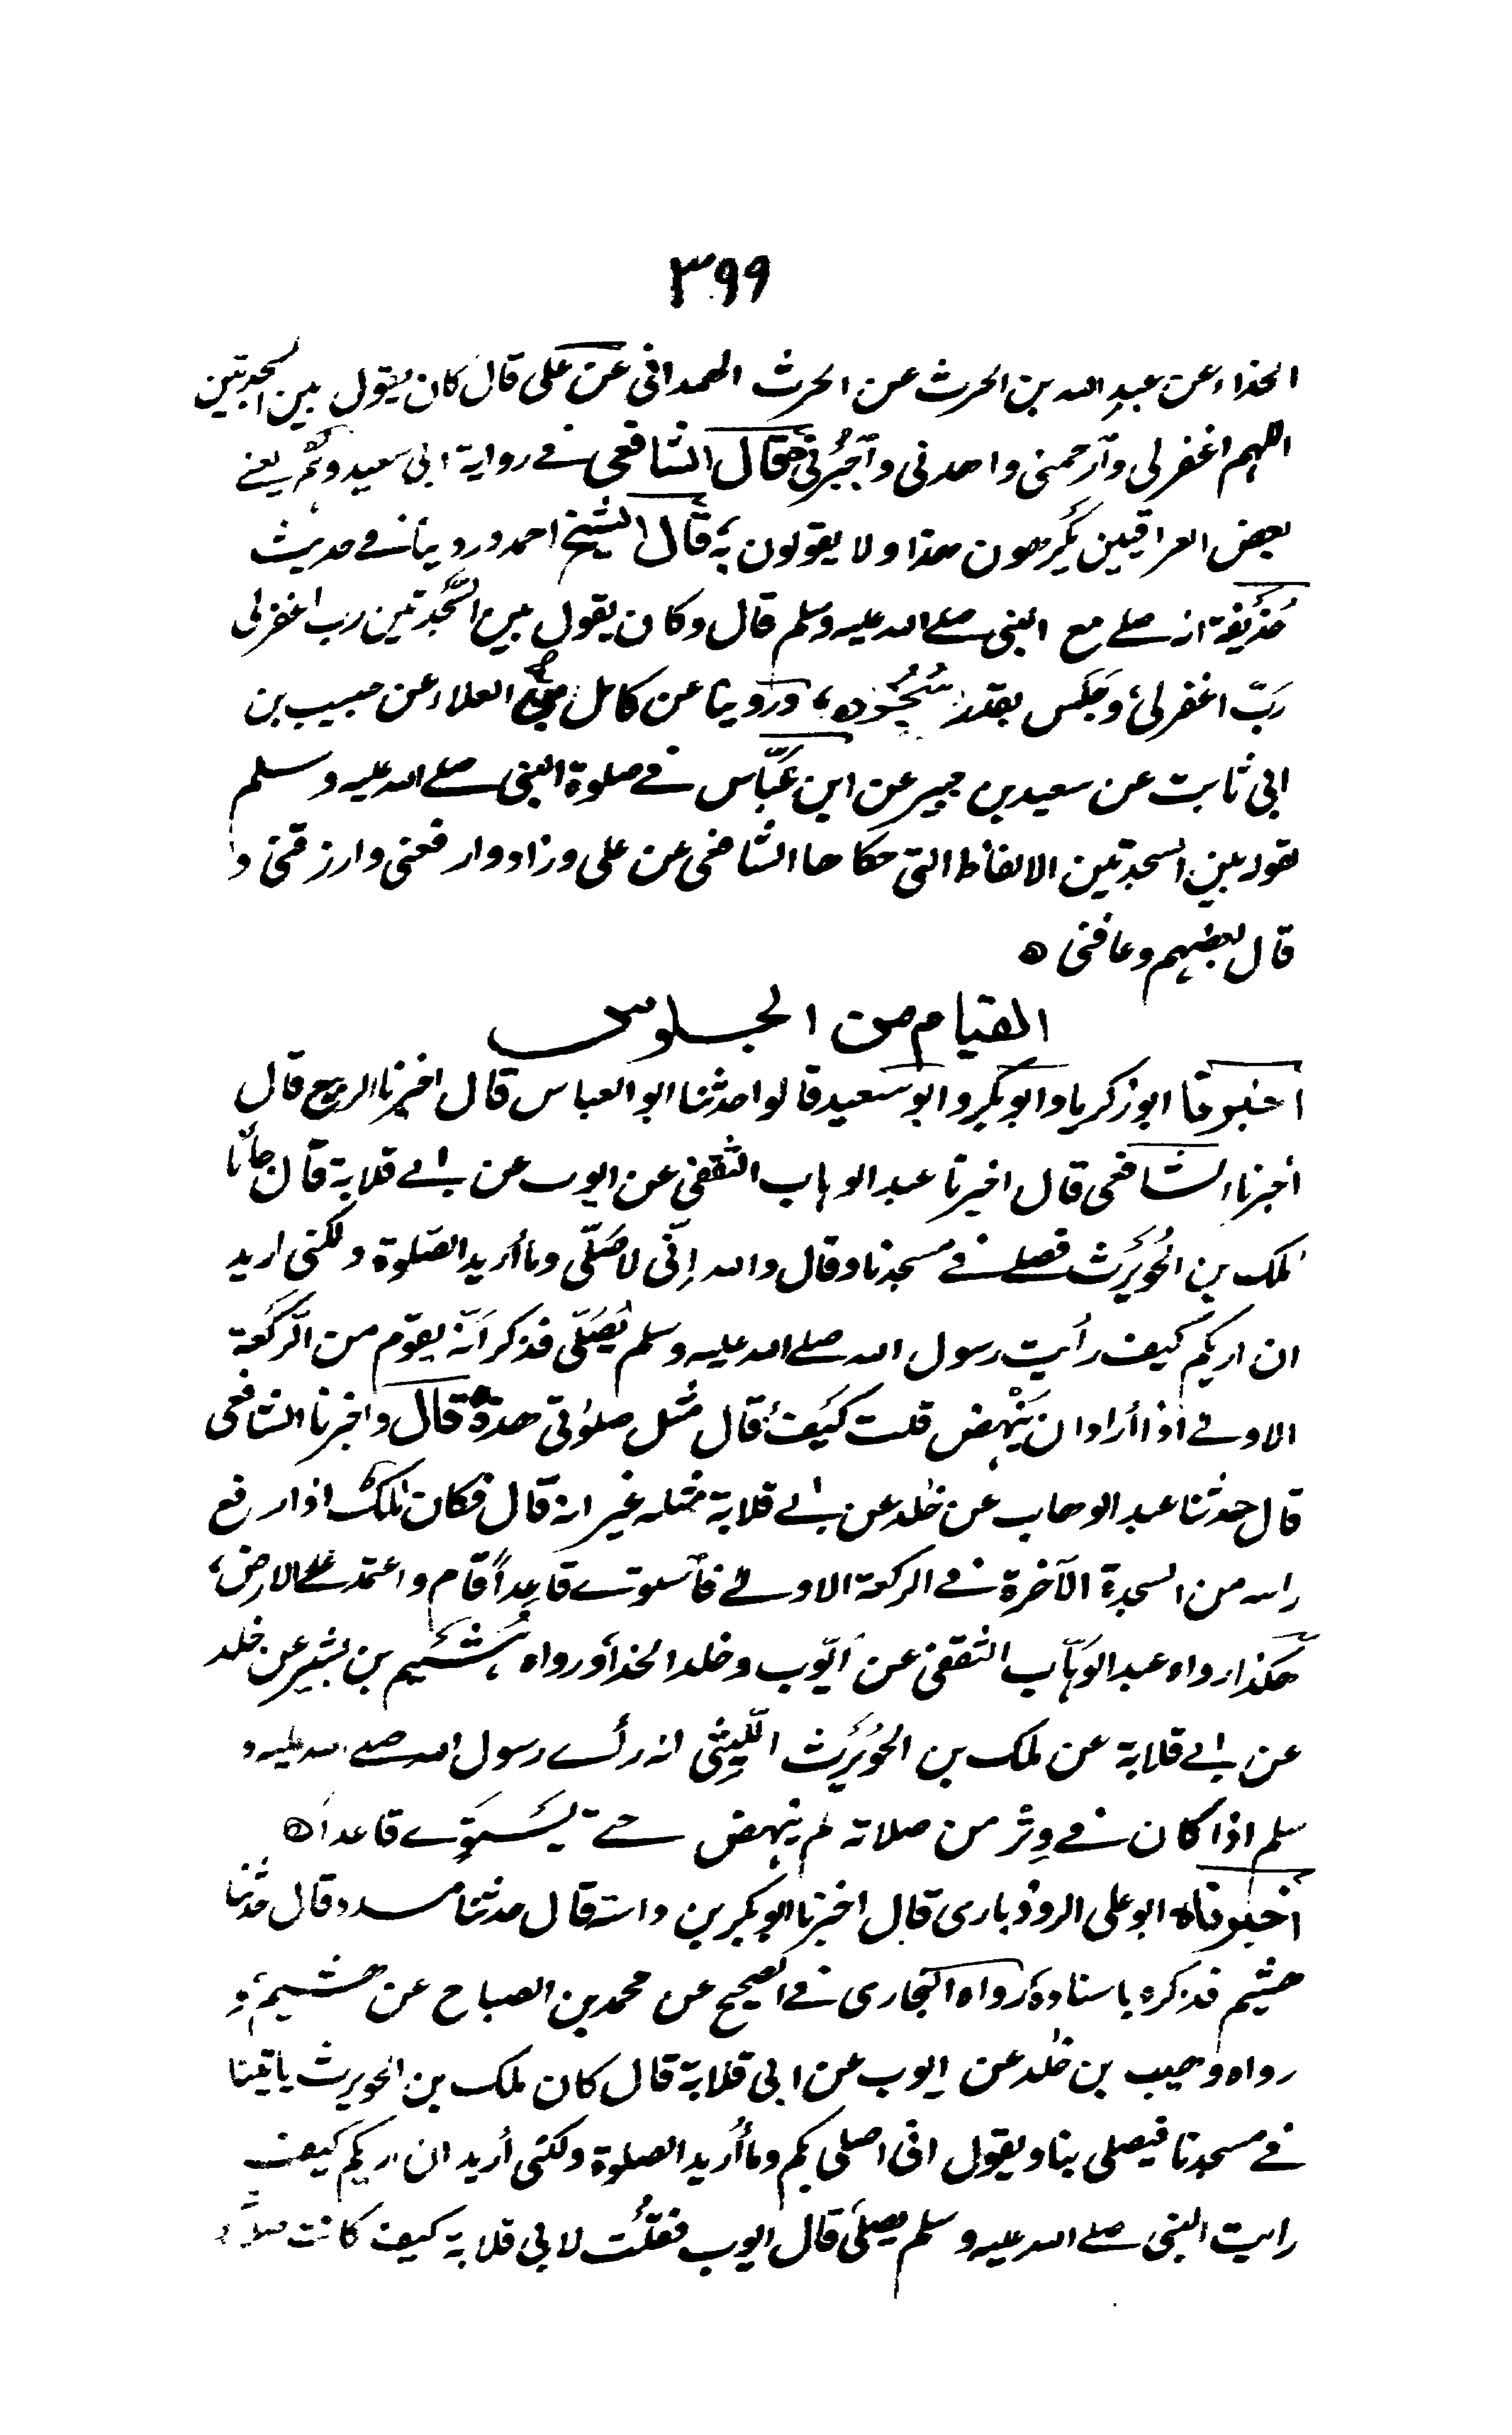 ٣٩٩
الحذاء عن عبد الله بن الحرث عن الحرث الهمدانى عن على قال كان يقول بين السجدتين
اللهم اغفر لى وَٱرحمنى واهدنى وٱجبُرنى قال الشافعى فے رواية ابى سعيد وهُم يعنے
بعض العراقيين يَكرهون هذا ولا يقولون به قال الشيخ احمد وروينا فے حديث
حُذَيفة انه صلے مع النبى صلے الله عليه وسلم قال وكان يقول بين السَّجدتين رب اغفر لى
رَبّ اغفر لى وَجَلَس بقدر سُجُوده، وروينا عن كامل العلاء عن حبيب بن
ابى ثابت عن سعيد بن جبير عن ابن عَبَّاس فے صلوة النبى صلے الله عليه وسلم
بقول بين السجدتين الالفاظ التى حكاها الشافعى عن على وزاد وارفعنى وارزقنى و
قال بعضهم وعافنى ہ
القيام من الجلوس
اخبرنا ابو زكريا وابو بكر وابو سعيد قالوا حدثنا ابو العباس قال اخبرنا الربيع قال
أخبرنا الشافعى قال اخبرنا عبد الوهاب الثقفى عن ايوب عن ابے قلابة قال جاءنا
مٰلك بن الحُوَيرث فصلے فے مسجدنا وقال والله اِنّى لاُصَلّى وما أريد الصَّلوة ولكنى اريد
ان اريكم كيف رأيت رسول الله صلے الله عليه وسلم يُصَلّى فذكر اَنّه يقوم من الرَّكعة
الاولے اذا أراد ان يَنْهض قلت كَيفَ قال مثل صلوٰتى هذه قال واخبرنا الشافعى
قال حدثنا عبد الوهاب عن خٰلد عن ابے قلابة مثله غير انه قال فكان مٰلك اذا رفع
راسه من السجدة الآخرة فے الركعة الاولے فاستوے قاعِداً قام واعتمد علے الارض،
هكذا رواه عبد الوَهّاب الثقفى عن ايّوب وخلد الحذاء ورواه هُشَيم بن بشير عن خلد
عن ابے قلابة عن ملك بن الحُوَيرث اللَّيثى انه رأے رسول الله صلے الله عليه و
سلم اذا كان فے وِتْر من صلاته لم ينهض حتے يَستَوِے قاعداً ہ
أخبرناه ابو على الروذبارى قال اخبرنا ابو بكر بن داسة قال حدثنا مسدد قال حدثنا
هشيم فذكره باسناده رواه البخارى فے الصحيح عن محمد بن الصباح عن هشيم، و
رواه وهيب بن خٰلد عن ايوب عن ابى قلابة قال كان ملك بن الحويرث ياتينا
فے مسجدنا فيصلى بنا ويقول انى اصلى بكم وما أُريد الصلوة ولكنى أريد ان اريكم كيف
رايت النبى صلے الله عليه وسلم يصلى قال ايوب فقلت لابى قلابة كيف كانت